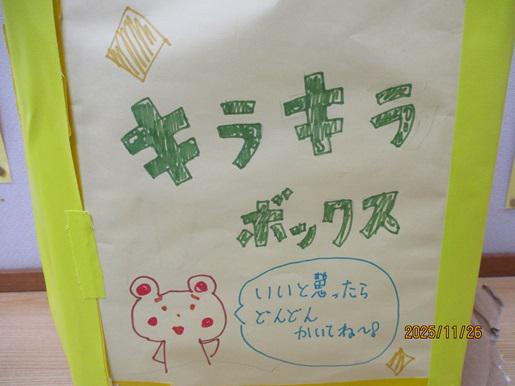 キラキラ
ボックス
いいと思ったら
どんどん
かいてね〜!
2025/11/26